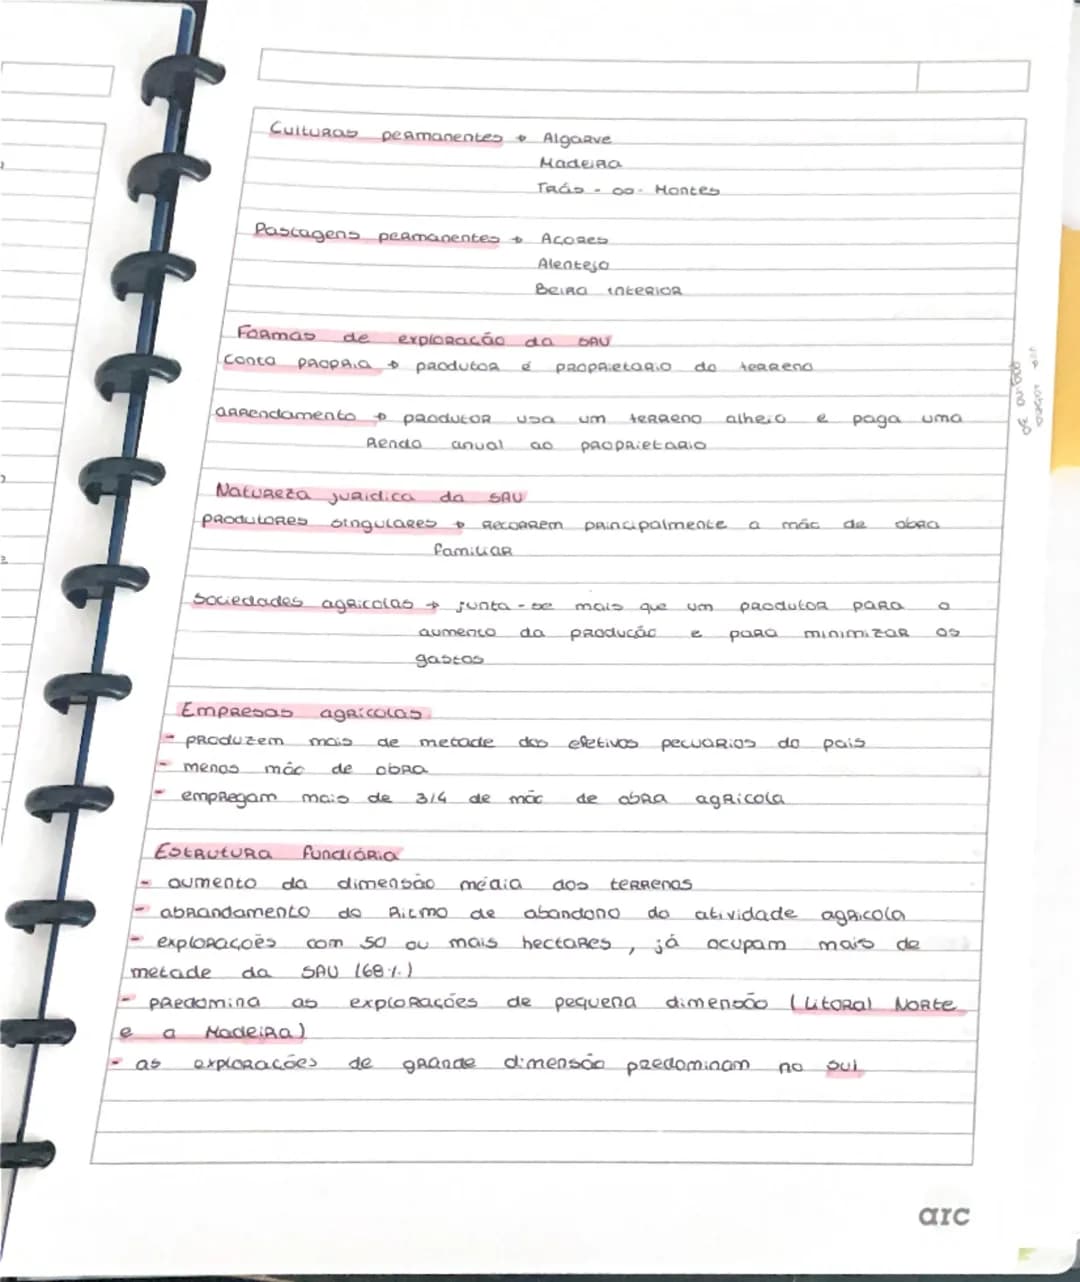 Culturas permanentes → Algarve
Madeira
Trás-os-Montes
Pastagens permanentes → Açores
Alentejo
Beira interior
Formas de exploração da SAU
Conta propria → produtor é proprietario do terreno
arrendamento → produtor usa um terreno alheio e paga uma
Renda anual ao proprietario
Natureza juridica da SAU
produtores singulares → recorrem principalmente a mão de obra
familiar
Sociedades agricolas → junta-se mais que um produtor para o
aumento da produção e para minimizar os
gastos
Empresas agricolas
- produzem mais de metade dos efetivos pecuarios do pais
- menos mão de obra
- empregam mais de 3/4 de mão de obra agricola
Estrutura fundiária
- aumento da dimensão média dos terrenos
- abrandamento do Ritmo de abandono da atividade agricola
- explorações com 50 ou mais hectares, já ocupam mais de
metade da SAU (68%)
- predomina as explorações de pequena dimensão (Litoral Norte
e a Madeira)
- as explorações de grande dimensão predominam no sul
arc